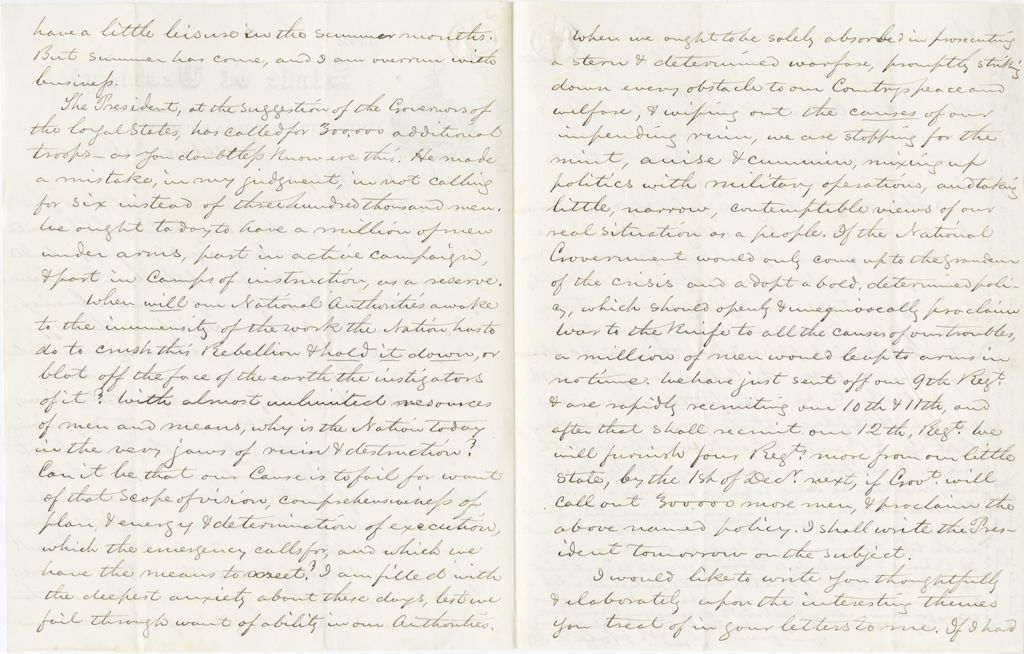 have a little leisure in the summer months.
But summer has come, and I am overrun with
business.
The President, at the suggestion of the Governors of
the loyal States, has called for 300,000 additional
troops – as you doubtless know ere this. He made
a mistake, in my judgment, in not calling
for six instead of three hundred thousand men.
We ought to day to have a million of men
under arms, part in active campaign,
& part in Camps of instruction, as a reserve.
When will our National Authorities awake
to the immensity of the work the Nation has to
do to crush this Rebellion & hold it down, or
blot off the face of the earth the instigators
of it? With almost unlimited resources
of men and means, why is the Nation today
in the very jaws of ruin & destruction?
Can it be that our Cause is to fail for want
of that scope of vision, comprehensiveness of
plan, & energy & determination of execution,
which the emergency calls for, and which we
have the means to meet? I am filled with
the deepest anxiety about these days, lest we
fail through want of ability in our Authorities.
When we ought to be solely absorbed in prosecuting
a stern & determined warfare, promptly striking
down every obstacle to our Country's peace and
welfare, & wiping out the causes of our
impending ruin, we are stopping for the
mint, anise & cummin, mixing up
politics with military operations, and taking
little, narrow, contemptible views of our
real situation as a people. If the National
Government would only come up to the grandeur
of the crisis and adopt a bold, determined poli-
cy, which should openly & unequivocally proclaim
war to the Knife to all the causes of our troubles,
a million of men would leap to arms in
no time. We have just sent off our 9th Regt.
& are rapidly recruiting our 10th & 11th, and
after that shall recruit our 12th, Regt. We
will furnish four Regts more from our little
State, by the 1st of Decr. next, if Govt. will
call out 300.000 more men, & proclaim the
above named policy. I shall write the Pres-
ident tomorrow on the subject.
I would like to write you thoughtfully
& elaborately upon the interesting themes
you treat of in your letters to me. If I had